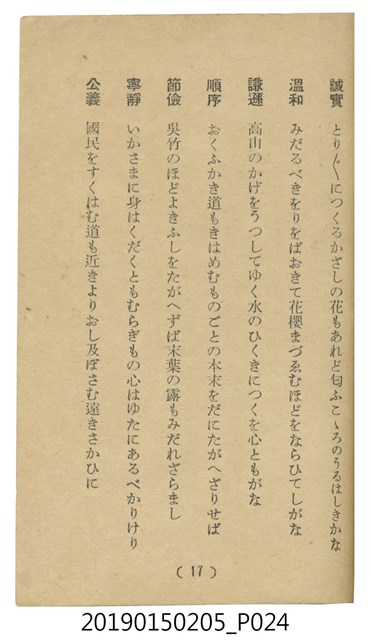 誠實 とり〲につくるかざしの花もあれど匂ふこゝろのうるはしきかな
溫和 みだるべきをりをばおきて花櫻まづゑむほどをならひてしがな
謙遜 高山のかげをうつしてゆく水のひくきにつくを心ともがな
順序 おくふかき道もきはめむものごとの本末をだにたがへざりせば
節儉 吳竹のほどよきふしをたがへずば末葉の露もみだれざらまし
寧靜 いかさまに身はくだくともむらぎもの心はゆたにあるべかりけり
公義 國民をすくはむ道も近きよりおし及ぼさむ遠きさかひに
(17)
20190150205_P024